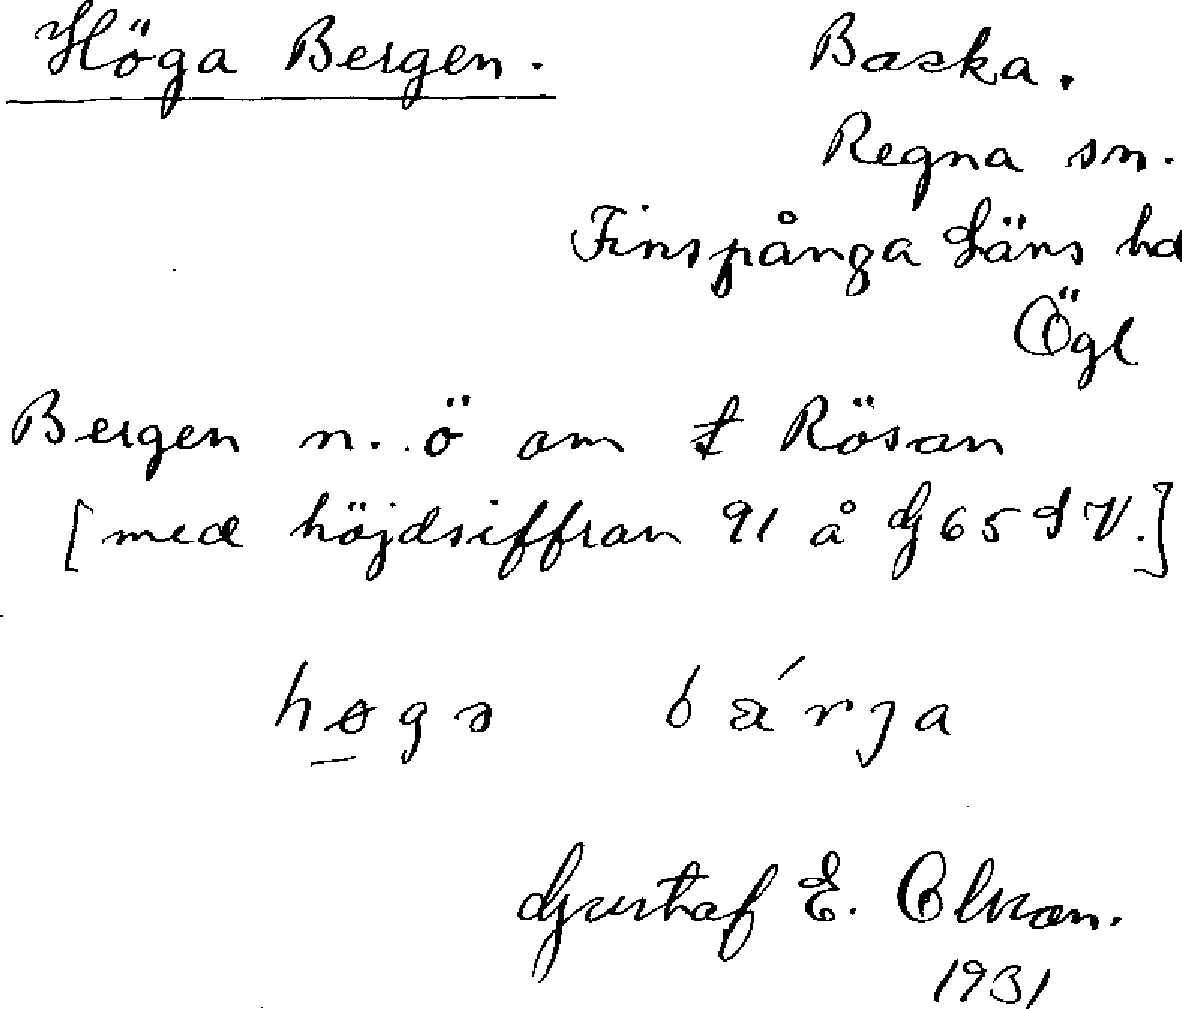 Höga Bergen. Backa.
Regna sn.
Finspånga Läns hd
Ögl
Bergen n. ö om Rösan
[med höjdsiffran 91 å G 65 SV.]
høgə bärja
Gustaf E. Olson.
1931